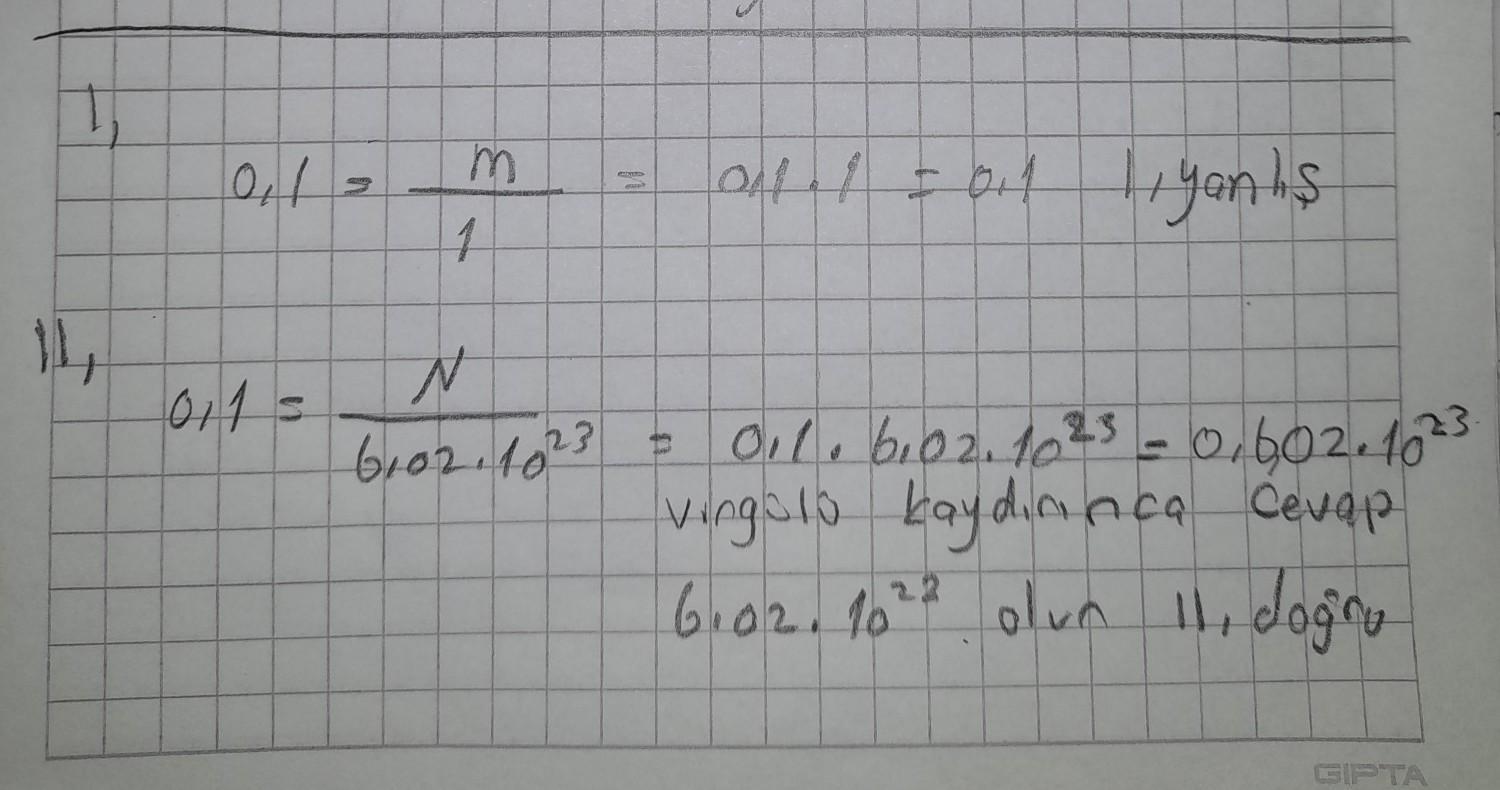 I,
0,1 = m / 1 = 0,1 . 1 = 0,1 I, yanlış
II,
0,1 = N / 6,02.10²³ = 0,1 . 6,02.10²³ = 0,602.10²³
virgülü kaydırınca cevap
6,02.10²² olur II, doğru
GIPTA